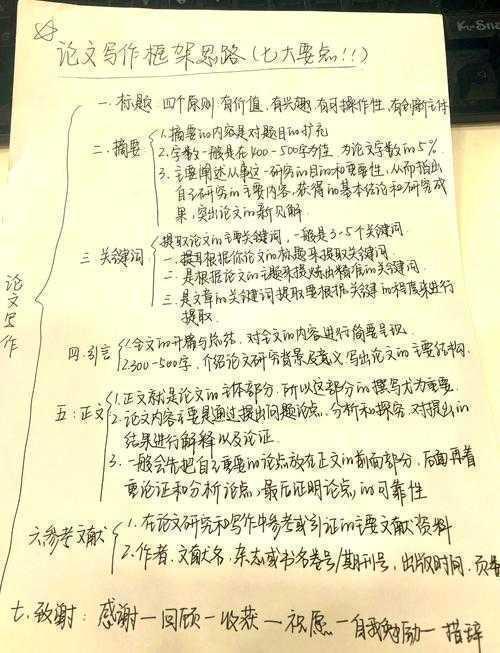 论文写作框架思路(七大要点!!!)
论文写作
一. 标题 四个原则:有价值,有兴趣,有可操作性,有创新
二. 摘要
1.摘要的内容是对题目的扩充
2.字数一般是在400-500字为值,为论文字数的5%.
3.主要阐述从事这一研究的目的和重要性,从而指出
自己研究的主要内容,获得的基本结论和研究成
果,突出论文的新见解.
三 关键词
提取论文的主要关键词,一般是3-5个关键词.
一.提取根据你论文的标题来提取关键词.
二.是根据论文的主题来提炼出精准的关键词.
三.是文章的关键词提取要根据关键的程度来进行
提取.
四.引言
1.全文的开篇与总结,对全文的内容进行简要呈现.
2.300-500字,介绍论文研究背景及意义,写出论文的主要结构.
五:正文
1.正文就是论文的主体部分,所以这部分的撰写尤为重要.
2.论文内容主要是通过提出问题论点,分析和探究,对提出的
结果进行解释以及论证.
3.一般会先把自己重要的论点放在正文的前面部分,后面再着
重论证和分析论点,最后证明论点的可靠性
六.参考文献
1.在论文研究和写作中参考或引证的主要文献资料
2.作者.文献名.杂志或书名卷号/期刊号,出版时间.页
七.致谢:感谢—回顾—收获—祝愿—自我勉励—措辞